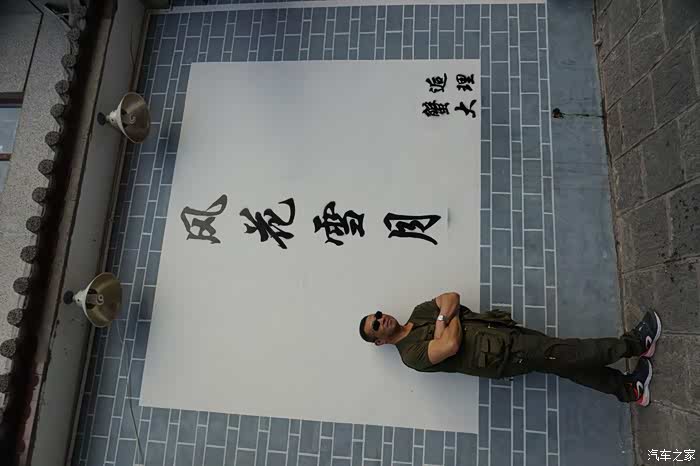 风花雪月
蟹逅
大理
汽车之家